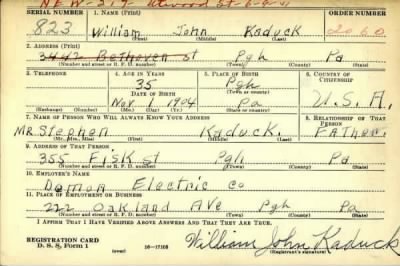 NEW-319 Atwood St 6-9-41
SERIAL NUMBER 1. NAME (Print) ORDER NUMBER
823 William John Kaduck 2060
(First) (Middle) (Last)
2. ADDRESS (Print)
3442 Bethoven st Pgh Pa
(Number and street or R. F. D. number) (Town) (County) (State)
3. TELEPHONE 4. AGE IN YEARS 5. PLACE OF BIRTH 6. COUNTRY OF CITIZENSHIP
35 Pgh
DATE OF BIRTH (Town or county)
Nov 1 1904 Pa U.S.A.
(Exchange) (No.) (Mo.) (Day) (Yr.) (State or country)
7. NAME OF PERSON WHO WILL ALWAYS KNOW YOUR ADDRESS 8. RELATIONSHIP OF THAT PERSON
Mr Stephen Kaduck. Father.
(Mr., Mrs., Miss) (First) (Middle) (Last)
9. ADDRESS OF THAT PERSON
355 Fisk st Pgh Pa
(Number and street or R. F. D. number) (Town) (County) (State)
10. EMPLOYER'S NAME
Demon Electric Co
11. PLACE OF EMPLOYMENT OR BUSINESS
222 Oakland Ave Pgh Pa
(Number and street or R. F. D. number) (Town) (County) (State)
I AFFIRM THAT I HAVE VERIFIED ABOVE ANSWERS AND THAT THEY ARE TRUE.
REGISTRATION CARD
D. S. S. Form 1 (over) 16-17105 William John Kaduck
(Registrant's signature)